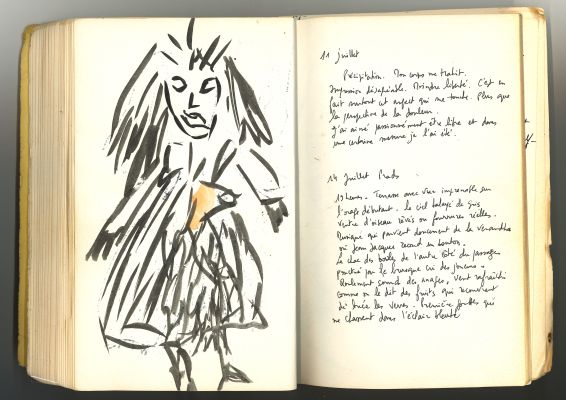 11 juillet
Précipitation. Mon corps me trahit.
Impression désagréable. Moindre liberté. C'est en
fait surtout cet aspect qui me touche. Plus que
la perspective de la douleur.
J'ai aimé passionnément être libre et dans
une certaine mesure je l'ai été.
14 juillet Prads
19 heures. Terrasse avec vue imprenable sur
l'orage débutant. Le ciel balayé de gris
ventre d'oiseau rêvés ou fourrures réelles.
Musique qui parvient doucement de la véranda
où Jean Jacques
Le choc des boules de l'autre côté du passage
ponctué par le brusque cri des joueurs.
Roulement sourd des orages, vent rafraîchi
comme on le dit des fruits qui recouvrent
de buée les verres. Premières gouttes qui
me classent dans l'éclair bleuté